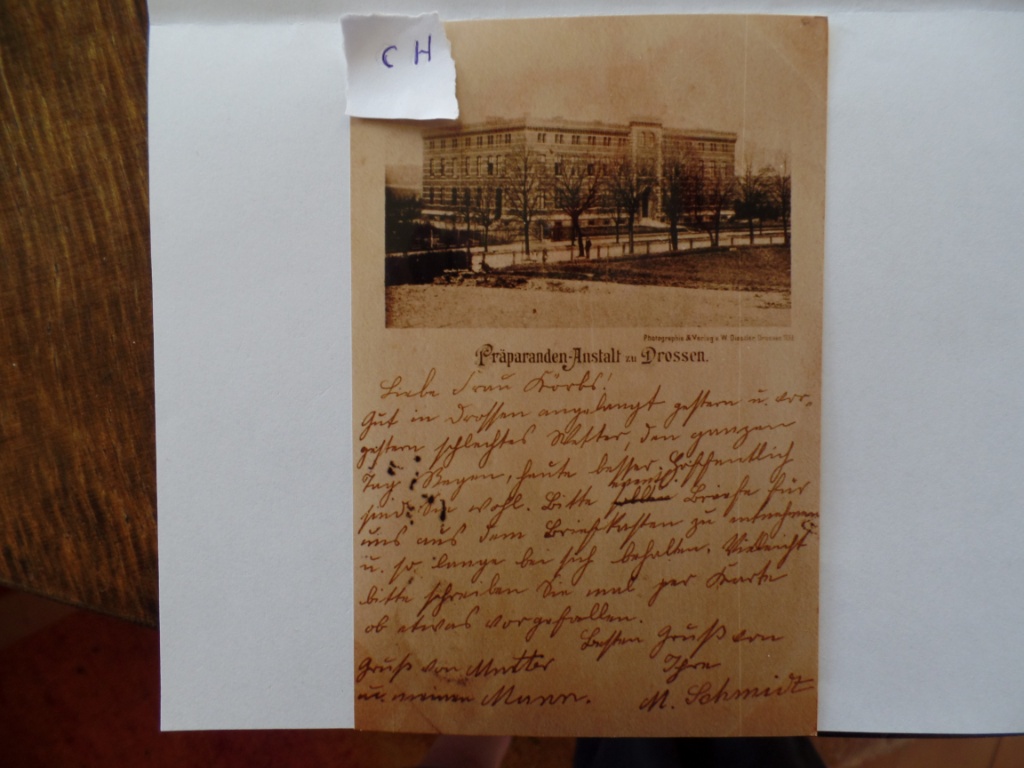 CH
Photographie & Verlag v. W. Dieseler Drossen
Präparanden-Anstalt zu Drossen.
Liebe Frau Körbs!
Gut in Drossen angelangt gestern u. vor-
gestern schlechtes Wetter, den ganzen
Tag Regen, heute besser. Hoffentlich
sind Sie wohl. Bitte event. Briefe für
uns aus dem Briefkasten zu entnehmen
u. so lange bei sich behalten. Vielleicht
bitte schreiben Sie mal per Karte
ob etwas vorgefallen.
Besten Gruß von
Gruß von Mutter
Ihre
u. meinem Mann.
M. Schmidt